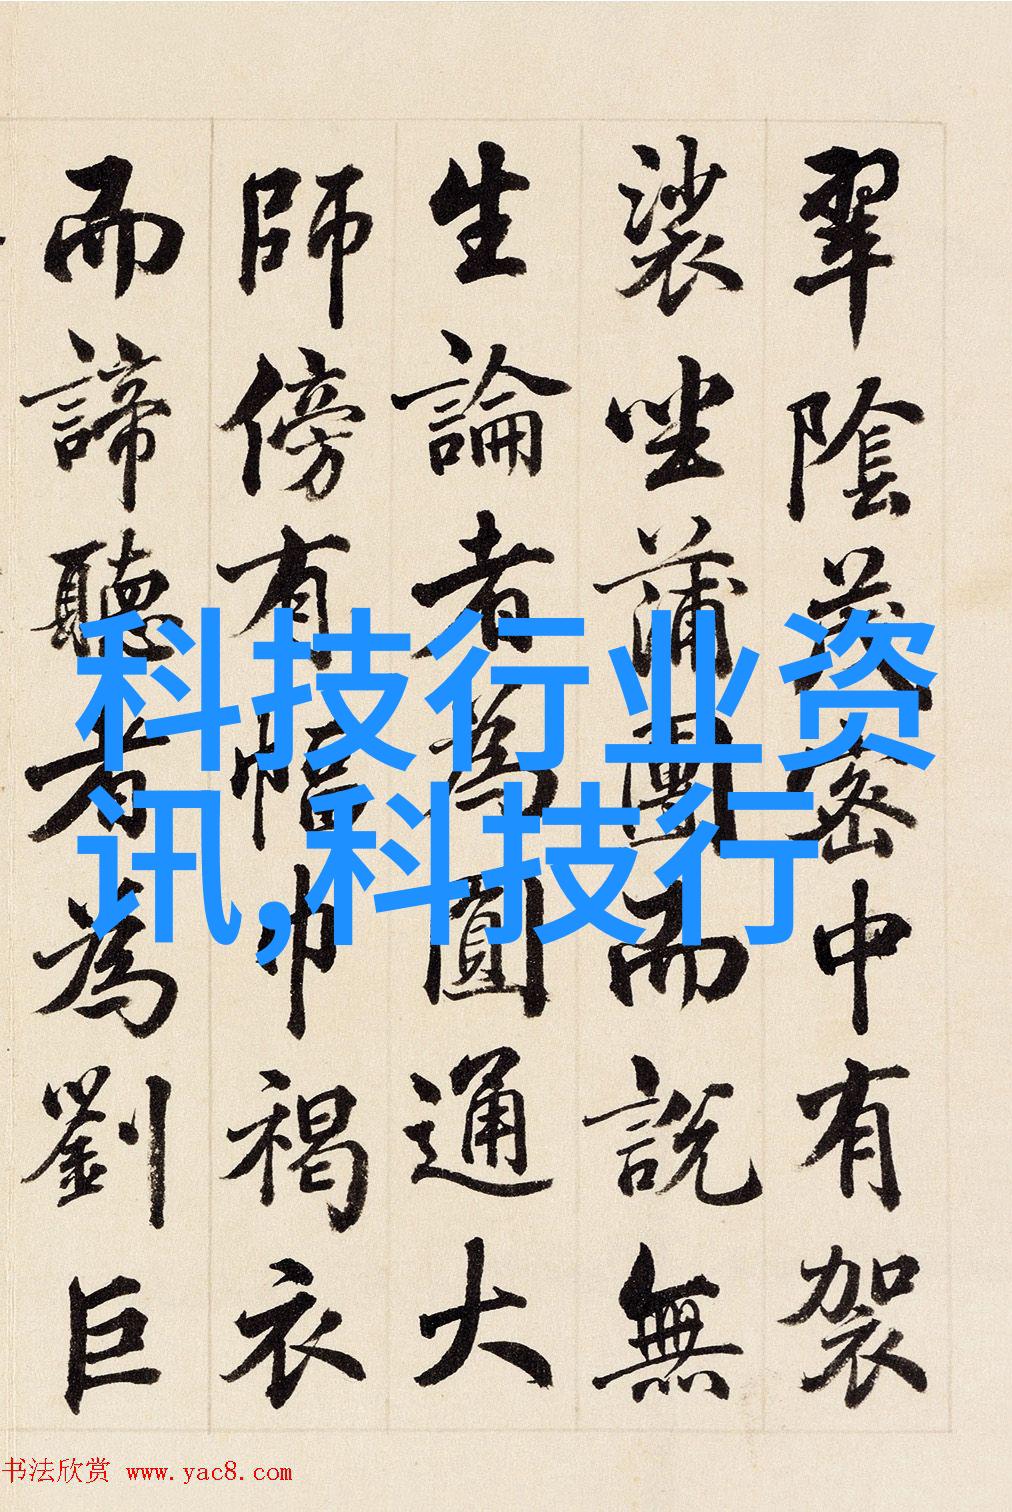 翠陰茂密中有袈
裟坐蒲團而說無
生論者為圓通大
師傍有幅巾褐衣
而諦聽者為劉巨
科技行业资
讯,科技行
书法欣赏 www.yac8.com